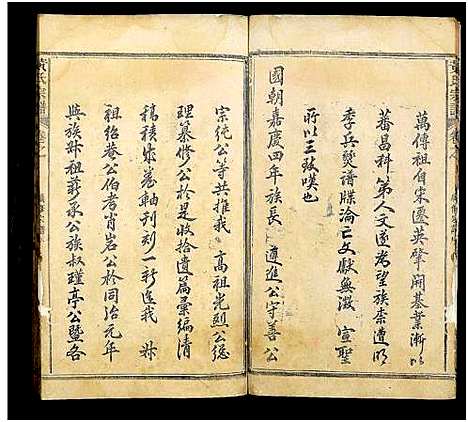 萬傳祖自宋遷英肇開基業漸以
蕃昌科第人文遂為望族崇遭明
季兵燹譜牒淪亡文獻無徵 宣聖
所以三致嘆也
國朝嘉慶四年族長 遵進公守善公
宗純公等共推我 高祖光烈公總
理纂修公於是收拾遺篇彙編清
稿積成卷軸刊刻一新迨我 叔
祖紹菴公伯考肖岩公於同治元年
與族叔祖莪承公族叔瑾亭公暨各
黃氏宗譜